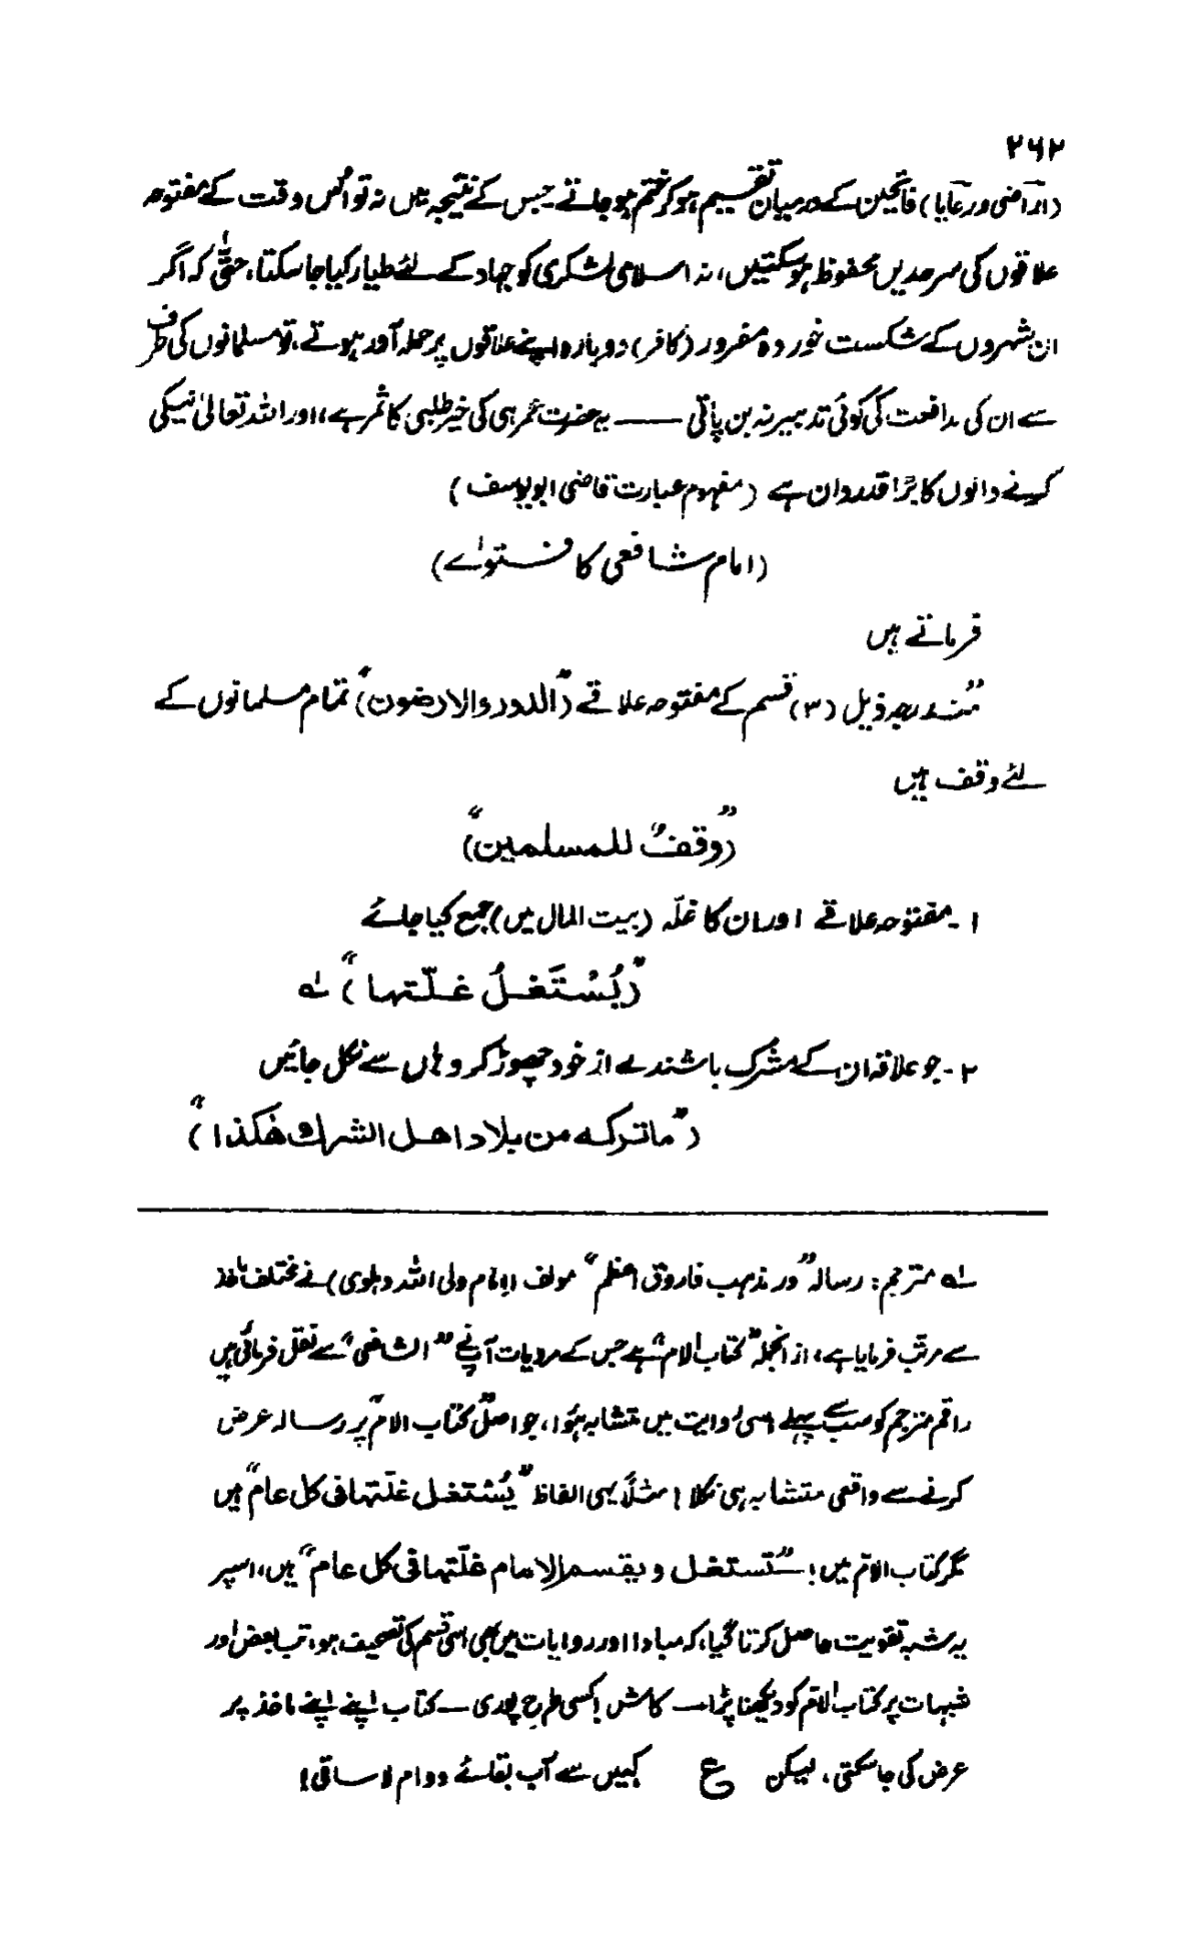 ۲۶۲
(اراضی و رعایا) فاتحین کے درمیان تقسیم ہو کر ختم ہو جاتے۔ جس کے نتیجہ میں نہ تو اُس وقت کے مفتوحہ
علاقوں کی سرحدیں محفوظ ہو سکتیں، نہ اسلامی لشکری کو جہاد کے لئے طیار کیا جا سکتا، حتّٰی کہ اگر
ان شہروں کے شکست خوردہ مفرور (کافر) دوبارہ اپنے علاقوں پر حملہ آور ہوتے، تو مسلمانوں کی طرف
سے ان کی مدافعت کی کوئی تدبیر نہ بن پاتی —— یہ حضرت عمر ہی کی خیر طلبی کا ثمر ہے،، اور اللہ تعالیٰ نیکی
کرنے والوں کا بڑا قدردان ہے (مفہوم عبارت قاضی ابو یوسف)
(امام شافعی کا فتوٰے)
فرماتے ہیں
"مندرجہ ذیل (۳) قسم کے مفتوحہ علاقے ("الدور والارضون") تمام مسلمانوں کے
لئے وقف ہیں
("وقفٌ للمسلمین")
۱۔ مفتوحہ علاقے اور ان کا غلّہ (بیت المال میں) جمع کیا جائے
("یُسْتَغلُ غلّتہا") لہ
۲۔ جو علاقہ ان کے مشرک باشندے از خود چھوڑ کر وہاں سے نکل جائیں
("ماترکہ من بلاد اھل الشرک ھٰکذا")
لہ مترجم: رسالہ "در مذہب فاروق اعظم" مولف (امام ولی اللہ دہلوی) نے مختلف مآخذ
سے مرتب فرمایا ہے، از انجملہ "کتاب الام" ہے جس کے مرویات آپ نے "الشافعی" سے نقل فرمائی ہیں
راقم مترجم کو سب سے پہلے اسی روایت میں متشابہ ہُوا، جو اصل "کتاب الام" پر رسالہ عرض
کرنے سے واقعی متشابہ ہی نکلا! مثلاً یہی الفاظ "یُسْتغل غلّتہا فی کل عام" ہیں
مگر کتاب الامّ میں! "تستغل و یقسم الامام غلّتہا فی کل عام" ہیں، اسپر
یہ شبہ تقویت حاصل کرتا گیا، کہ مبادا اور روایات میں بھی اسی قسم کی تصحیف ہو، تب بعض اور
شبہات پر کتاب الام کو دیکھنا پڑا — کاش! کسی طرح پوری — کتاب اپنے اپنے ماخذ پر
عرض کی جا سکتی، لیکن ع کہیں سے آب بقائے دوام لا ساقی!